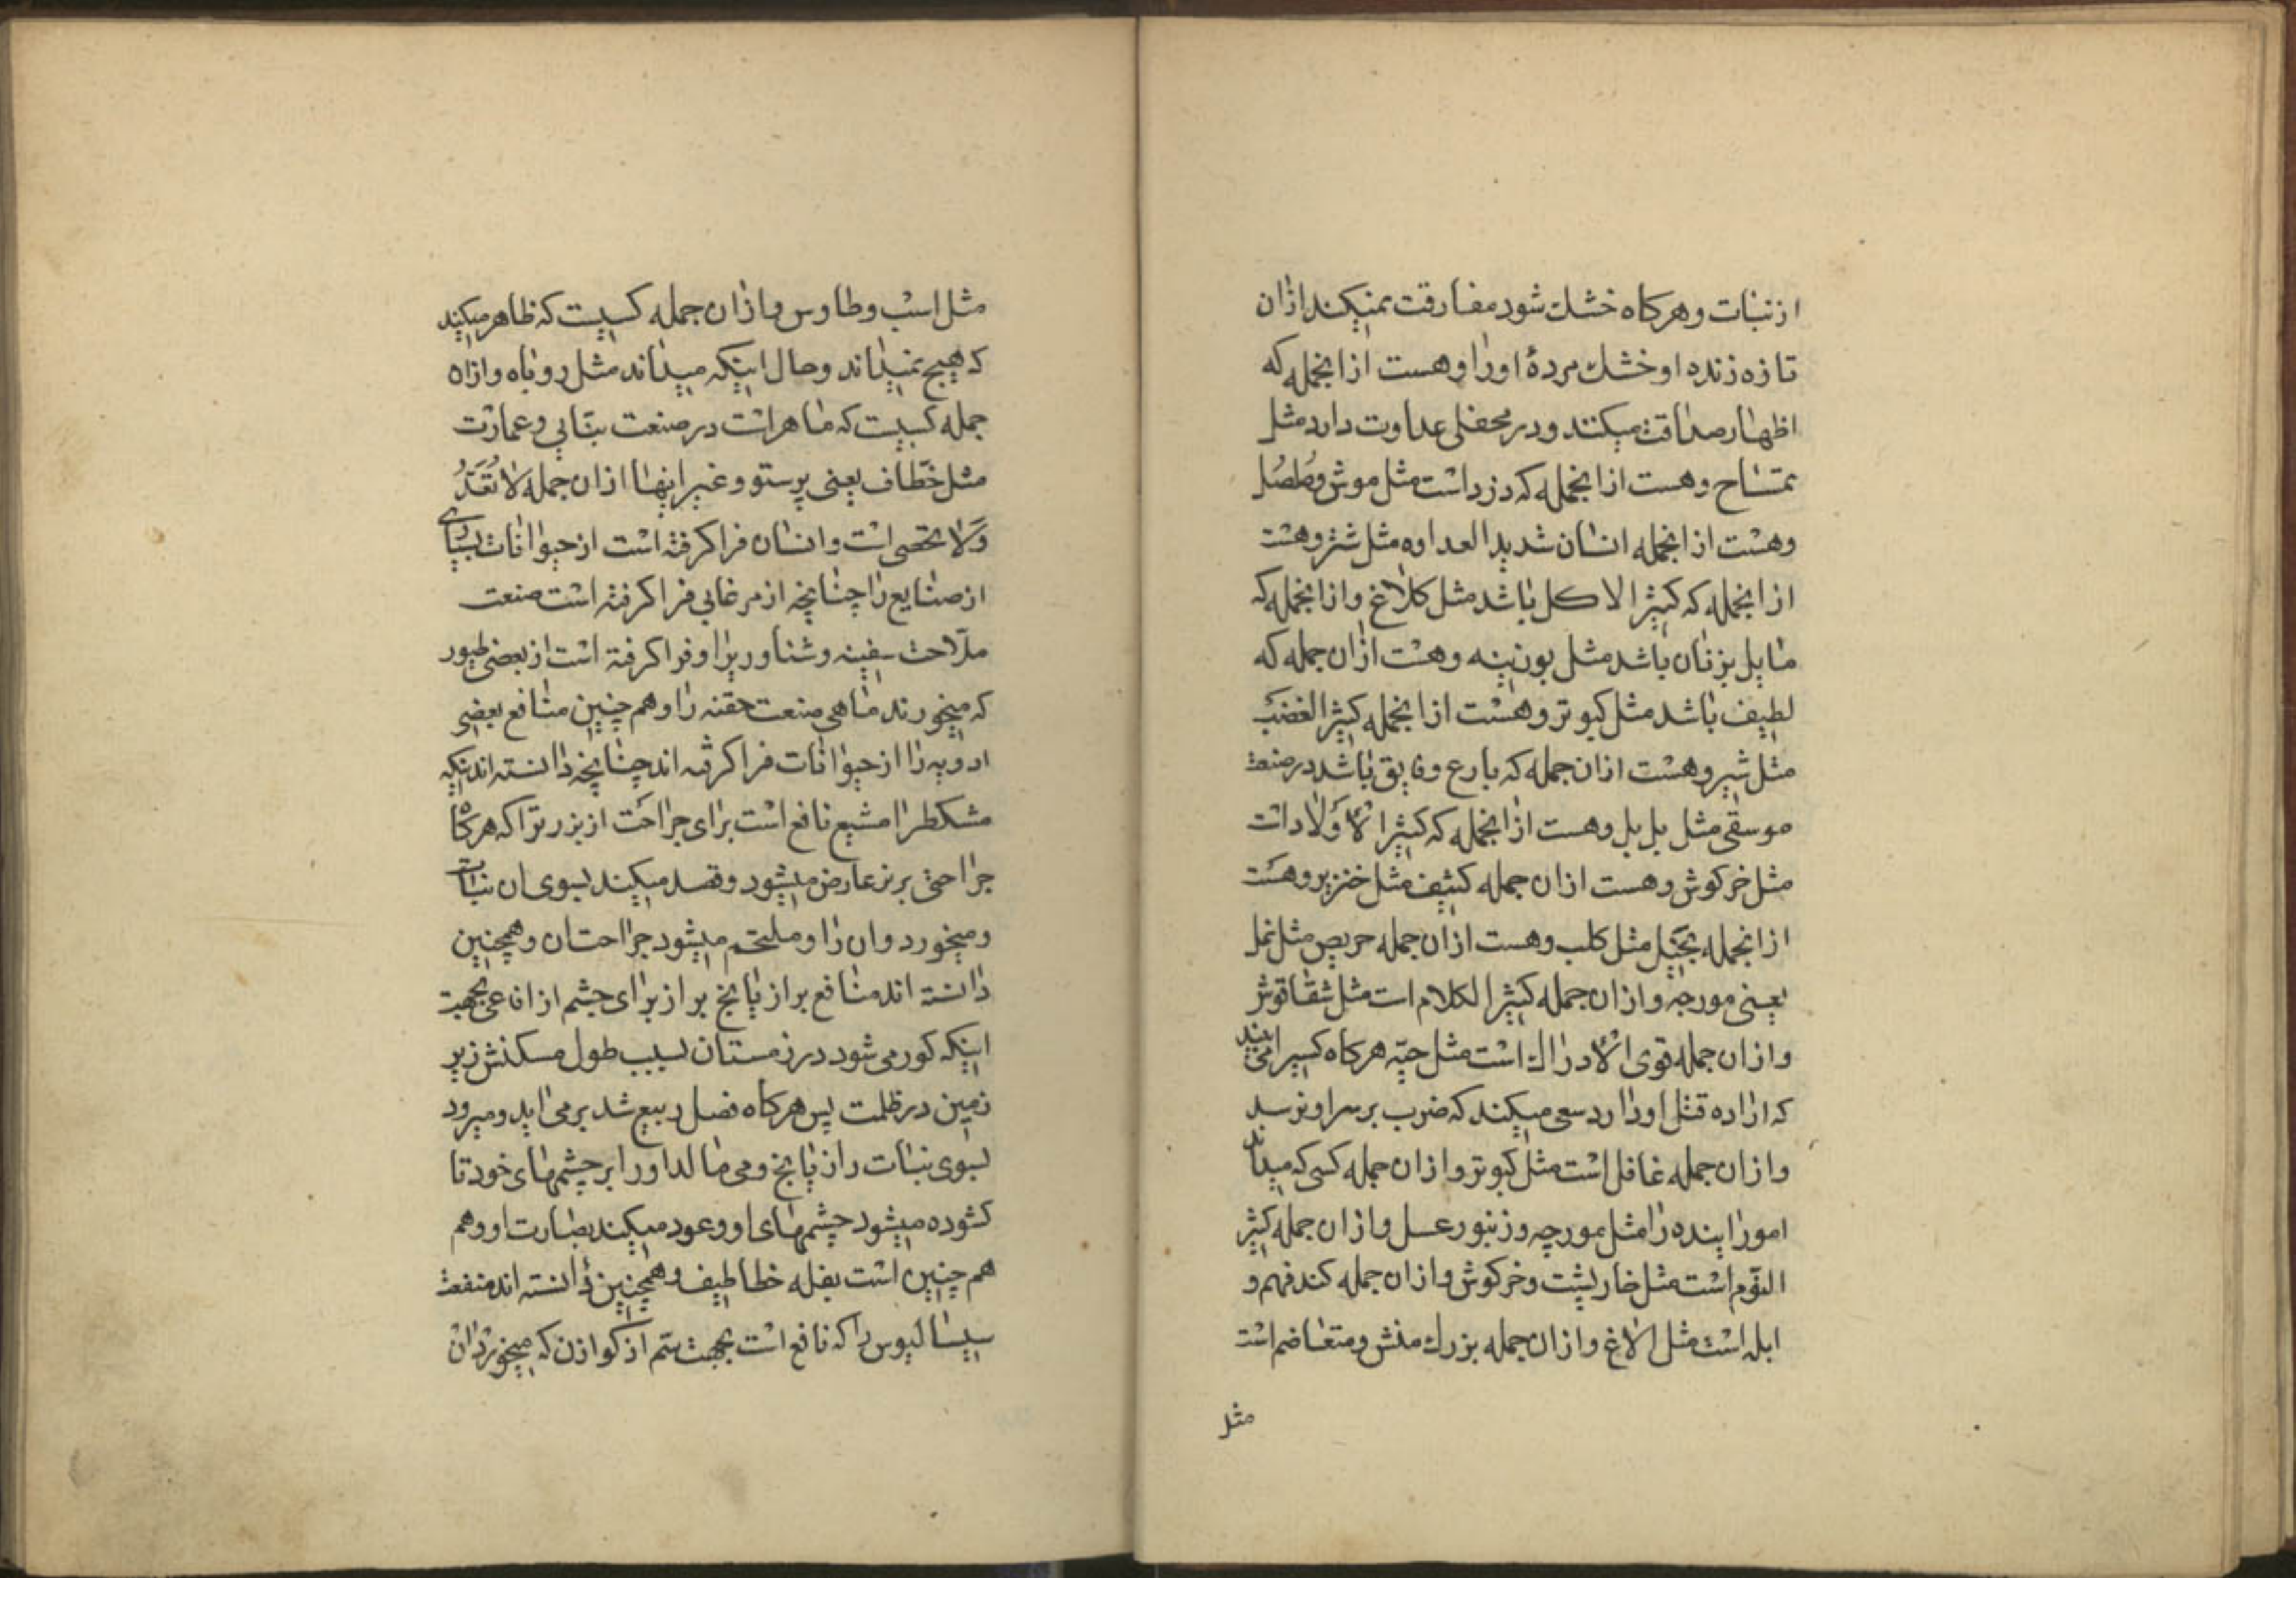 از نبات و هرکاه خشك شود مفارقت نمیکند ازان
تازه زنده او خشك مردهٔ اورا و هست ازانجمله که
اظهار صداقت میکند و در محفلی عداوت دارد مثل
تمساح و هست ازانجمله که دزد است مثل موش
و هست ازانجمله انسان شدید العداوه مثل شتر و هست
ازانجمله که کثیر الاکل باشد مثل کلاغ و ازانجمله که
مایل بزنان باشد مثل بوزینه و هست ازان جمله که
لطیف باشد مثل کبوتر و هست ازانجمله کثیر الغضب
مثل شیر و هست ازان جمله که بارع و فایق باشد در صنعت
موسقی مثل بل بل و هست ازانجمله که کثیر الاولاد است
مثل خرکوش و هست ازان جمله کثیف مثل خنزیر و هست
ازانجمله بخیل مثل کلب و هست ازان جمله حریص مثل نمل
یعنی مورچه و ازان جمله کثیر الکلام است مثل شقاقوش
و ازان جمله قوی الادراك است مثل حیّه هرکاه کسیرا می بیند
که اراده قتل اورا دارد سعی میکند که ضرب بر سر او نرسد
و ازان جمله غافل است مثل کبوتر و ازان جمله کسی که میداند
امور اینده را مثل مورچه و زنبور عسل و ازان جمله کثیر
النوم است مثل خارپشت و خرکوش و ازان جمله کند فهم و
ابله است مثل الاغ و ازان جمله بزرك منش و متعاضم است
مثل
مثل اسب و طاوس و ازان جمله کسیت که ظاهر میکند
که هیچ نمیداند و حال اینکه میداند مثل روباه و ازان
جمله کسیت که ماهر است در صنعت بنّایی و عمارت
مثل خطّاف یعنی پرستو و غیر اینها ازان جمله لا تُعَدُّ
وَلا تحصی است و انسان فرا کرفته است از حیوانات بسیاری
از صنایع را چنانچه از مرغابی فرا کرفته است صنعت
ملّاحت سفینه و شناوریرا و فرا کرفته است از بعضی طیور
که میخورند ماهی صنعت حقنه را و هم چنین منافع بعضی
ادویه را از حیوانات فرا کرفته اند چنانچه دانسته اند اینکه
مشکطرامشیع نافع است برای جراحت از بزر تراکه هرکاه
جراحتی بر بز عارض میشود و قصد میکند بسوی ان نبات
و میخورد و ان را و ملتحم میشود جراحتان و همچنین
دانسته اند منافع براز رازیانج برای چشم از افاعی بجهت
اینکه کور می شود در زمستان بسبب طول مسکنش زیر
زمین در ظلمت پس هرکاه فصل ربیع شد برمی اید و میرود
بسوی نبات رازیانج و می مالد اورا بر چشمهای خود تا
کشوده میشود چشمهای او و عود میکند بصارت او و هم
هم چنین است بفله خطاطیف و همچنین دانسته اند منفعت
سیسالیوس را که نافع است بجهت ستم از کوازن که میخورد ان